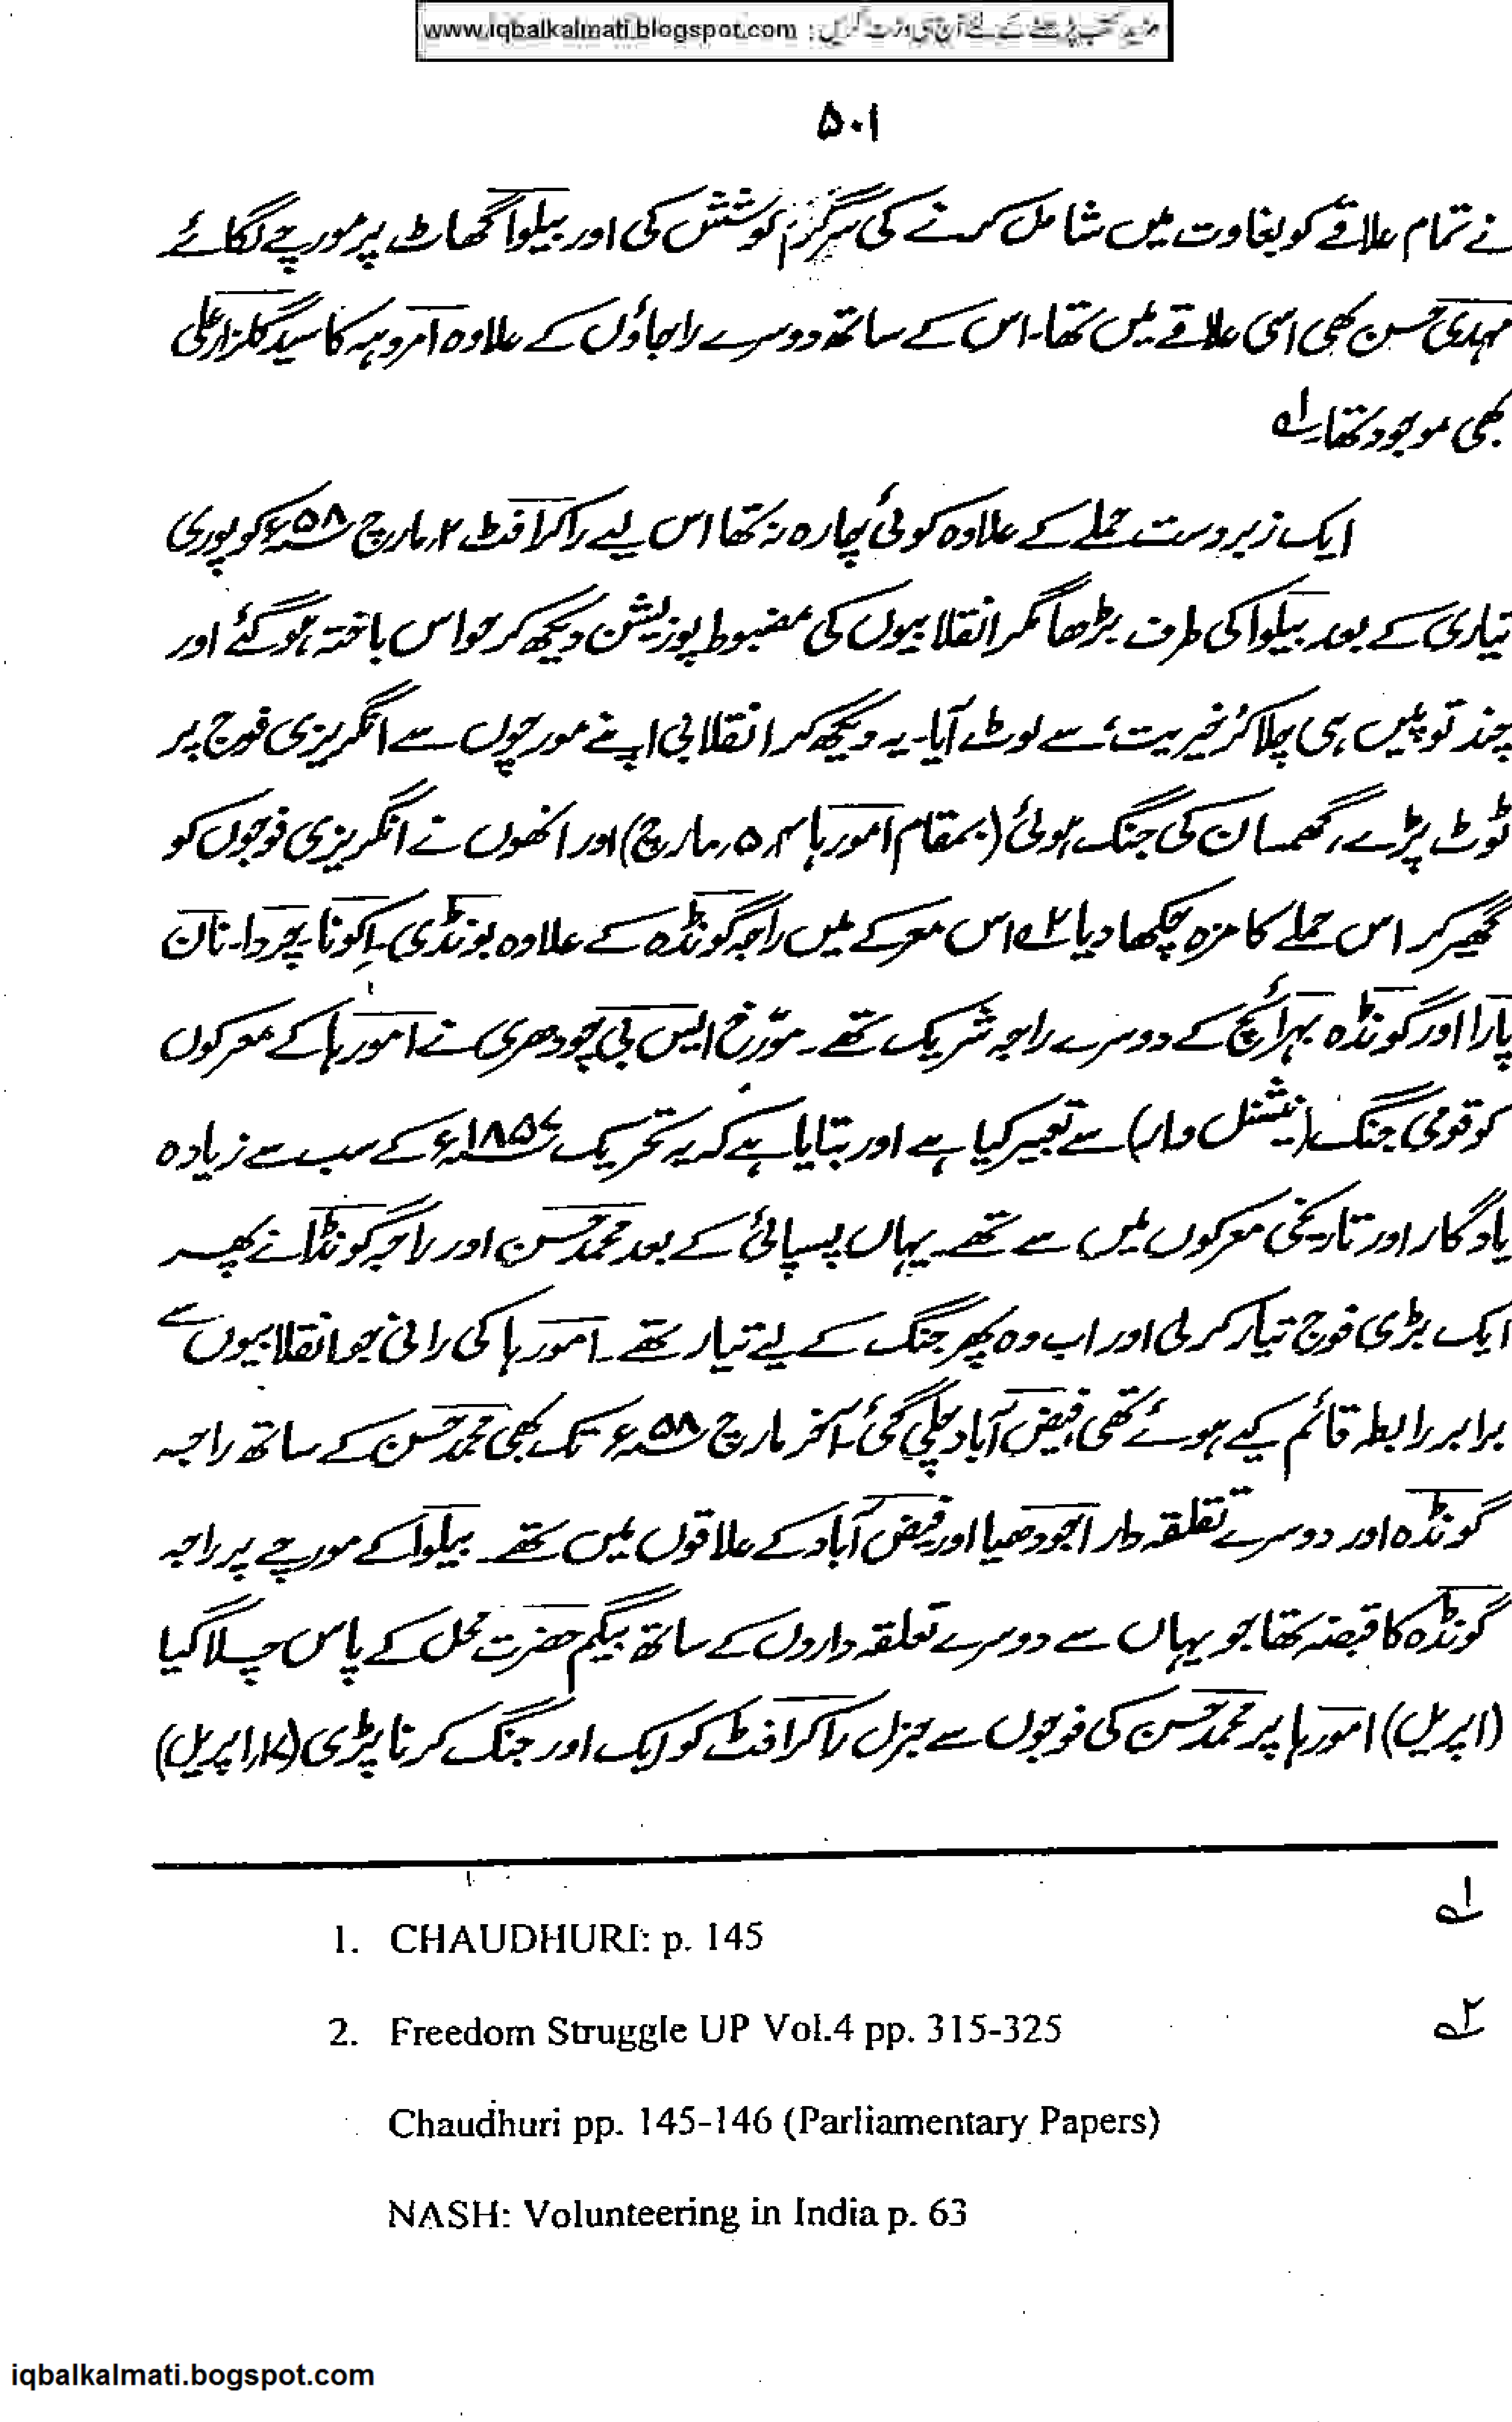 مزید کتب پڑھنے کے لئے آج ہی وزٹ کریں : www.iqbalkalmati.blogspot.com
۵۰۱
نے تمام علاقے کو بغاوت میں شامل کرنے کی سرگرم کوشش کی اور بیلوا گھاٹ پر مورچے لگائے
مہدی حسن بھی اسی علاقے میں تھا۔ اس کے ساتھ دوسرے راجاؤں کے علاوہ امروہہ کا سید گلزار علی
بھی موجود تھا۔ ۱؎
ایک زبردست حملے کے علاوہ کوئی چارہ نہ تھا اس لیے راکرافٹ ۲ مارچ ۵۸ء کو پوری
تیاری کے بعد بیلوا کی طرف بڑھا مگر انقلابیوں کی مضبوط پوزیشن دیکھ کر حواس باختہ ہو گئے اور
چند توپیں ہی چلا کر خیریت سے لوٹ آیا۔ یہ دیکھ کر انقلابی اپنے مورچوں سے انگریزی فوج پر
ٹوٹ پڑے، گھمسان کی جنگ ہوئی (بمقام امورہا ۴، ۵ مارچ) اور انھوں نے انگریزی فوجوں کو
گھیر کر اس حملے کا مزہ چکھا دیا ۲؎ اس معرکے میں راجہ گونڈہ کے علاوہ بونڈی۔ اکونا۔ چردا۔ نان
پارا اور گونڈہ بہرائچ کے دوسرے راجہ شریک تھے۔ مورّخ ایس بی چودھری نے امورہا کے معرکوں
کو قومی جنگ (نیشنل وار) سے تعبیر کیا ہے اور بتایا ہے کہ یہ تحریک ۱۸۵۷ء کے سب سے زیادہ
یادگار اور تاریخی معرکوں میں سے تھے۔ یہاں پسپائی کے بعد محمد حسن اور راجہ گونڈا نے پھر
ایک بڑی فوج تیار کر لی اور اب وہ پھر جنگ کے لیے تیار تھے۔ امورہا کی رانی جو انقلابیوں سے
برابر رابطہ قائم کیے ہوئے تھی، فیض آباد چلی گئی۔ آخر مارچ ۵۸ء تک بھی محمد حسن کے ساتھ راجہ
گونڈہ اور دوسرے تعلقہ دار اجودھیا اور فیض آباد کے علاقوں میں تھے۔ بیلوا کے مورچے پر راجہ
گونڈہ کا قبضہ تھا جو یہاں سے دوسرے تعلقہ داروں کے ساتھ بیگم حضرت محل کے پاس چلا گیا
(اپریل) امورہا پر محمد حسن کی فوجوں سے جنرل راکرافٹ کو ایک اور جنگ کرنا پڑی (۱۷ اپریل)
۱؎ 1. CHAUDHURI: p. 145
۲؎ 2. Freedom Struggle UP Vol.4 pp. 315-325
Chaudhuri pp. 145-146 (Parliamentary Papers)
NASH: Volunteering in India p. 63
iqbalkalmati.bogspot.com